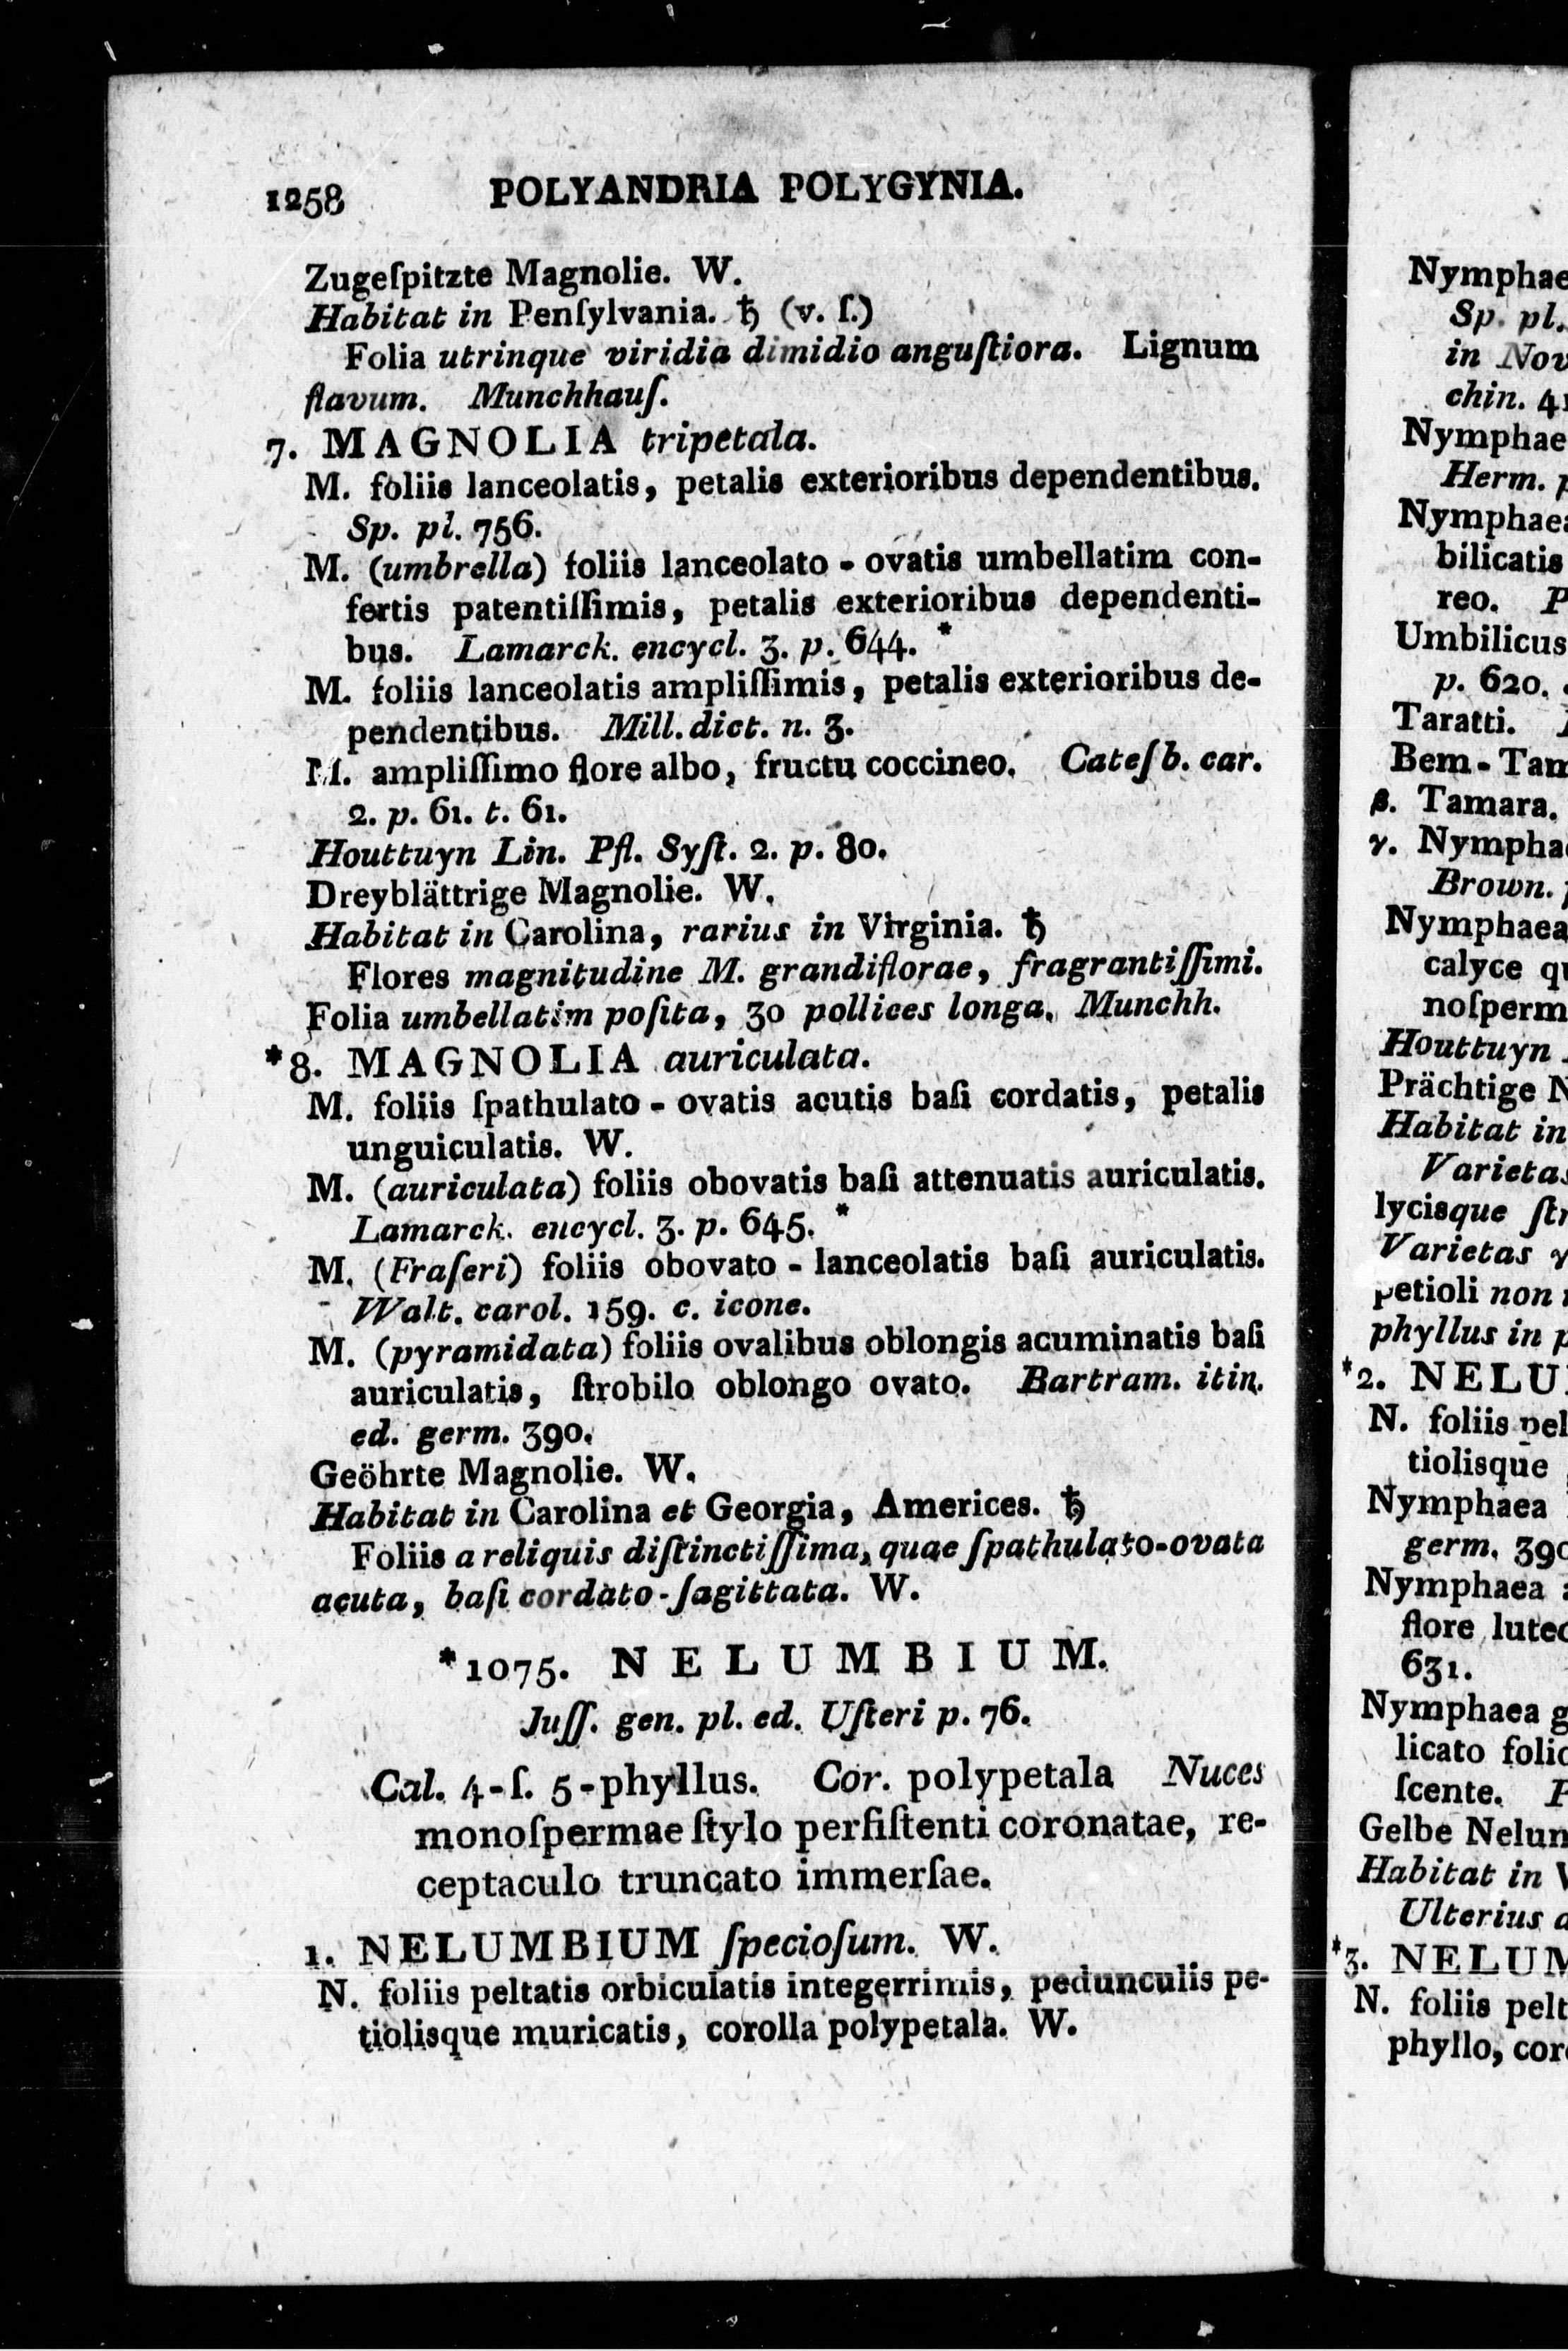 1258 POLYANDRIA POLYGYNIA.
Zugeſpitzte Magnolie. W.
Habitat in Penſylvania. ♄ (v. ſ.)
Folia utrinque viridia dimidio anguſtiora. Lignum
flavum. Munchhauſ.
7. MAGNOLIA tripetala.
M. foliis lanceolatis, petalis exterioribus dependentibus.
Sp. pl. 756.
M. (umbrella) foliis lanceolato - ovatis umbellatim con-
fertis patentiſſimis, petalis exterioribus dependenti-
bus. Lamarck. encycl. 3. p. 644. *
M. foliis lanceolatis ampliſſimis, petalis exterioribus de-
pendentibus. Mill. dict. n. 3.
M. ampliſſimo flore albo, fructu coccineo. Cateſb. car.
2. p. 61. t. 61.
Houttuyn Lin. Pfl. Syſt. 2. p. 80.
Dreyblättrige Magnolie. W.
Habitat in Carolina, rarius in Virginia. ♄
Flores magnitudine M. grandiflorae, fragrantiſſimi.
Folia umbellatim poſita, 30 pollices longa. Munchh.
*8. MAGNOLIA auriculata.
M. foliis ſpathulato - ovatis acutis baſi cordatis, petalis
unguiculatis. W.
M. (auriculata) foliis obovatis baſi attenuatis auriculatis.
Lamarck. encycl. 3. p. 645. *
M. (Fraſeri) foliis obovato - lanceolatis baſi auriculatis.
Walt. carol. 159. c. icone.
M. (pyramidata) foliis ovalibus oblongis acuminatis baſi
auriculatis, ſtrobilo oblongo ovato. Bartram. itin.
ed. germ. 390.
Geöhrte Magnolie. W.
Habitat in Carolina et Georgia, Americes. ♄
Foliis a reliquis diſtinctiſſima, quae ſpathulato-ovata
acuta, baſi cordato-ſagittata. W.
*1075. NELUMBIUM.
Juſſ. gen. pl. ed. Uſteri p. 76.
Cal. 4-ſ. 5-phyllus. Cor. polypetala Nuces
monoſpermae ſtylo perſiſtenti coronatae, re-
ceptaculo truncato immerſae.
1. NELUMBIUM ſpecioſum. W.
N. foliis peltatis orbiculatis integerrimis, pedunculis pe-
tiolisque muricatis, corolla polypetala. W.
Nymphae
Sp. pl.
in Nov
chin. 41
Nymphae
Herm. p
Nymphaea
bilicatis
reo. P
Umbilicus
p. 620.
Taratti.
Bem-Tam
β. Tamara.
γ. Nymphae
Brown. p
Nymphaea
calyce qu
noſperm
Houttuyn
Prächtige N
Habitat in
Varietas
lycisque ſtr
Varietas γ
petioli non
phyllus in p
*2. NELU
N. foliis pel
tiolisque
Nymphaea
germ. 390
Nymphaea a
flore luteo
631.
Nymphaea g
licato folio
ſcente. P
Gelbe Nelum
Habitat in V
Ulterius a
*3. NELUM
N. foliis pelt
phyllo, cor